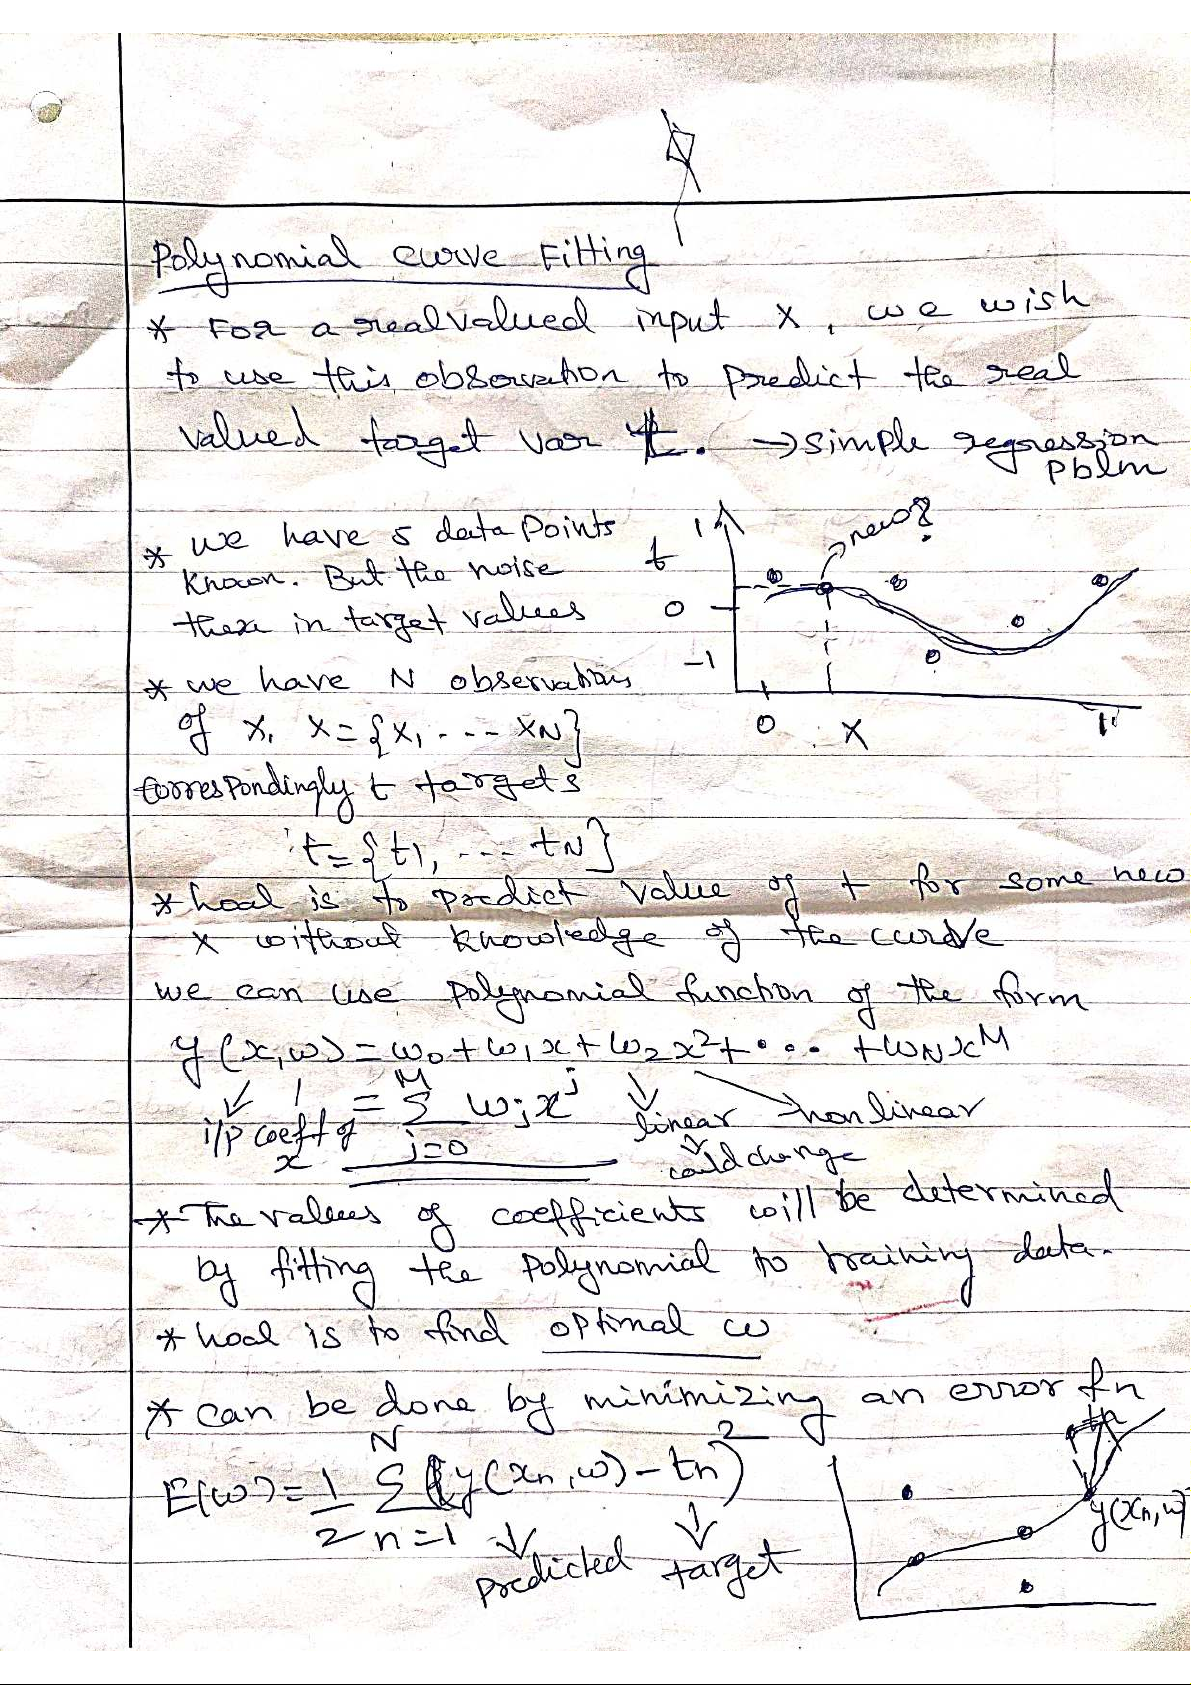 Polynomial curve Fitting
* For a real valued input x, we wish
to use this observation to predict the real
valued target var t. → simple regression
pblm
* we have 5 data points
known. But the noise
there in target values
1
t
0
-1
new?
0
x
1
* we have N observations
of x, x = {x1, --- xN}
correspondingly t targets
t = {t1, --- tN}
* Goal is to predict value of t for some new
x without knowledge of the curve
we can use polynomial function of the form
y(x,w) = w0 + w1x + w2x² + .... + wNx^M
= M Σ j=0 wjx^j
i/p coeff of
x
linear → non linear
could change
* The values of coefficients will be determined
by fitting the polynomial to training data.
* Goal is to find optimal w
* can be done by minimizing an error fn
E(w) = 1/2 N Σ n=1 (y(xn,w) - tn)²
predicted target
tn
y(xn,w)